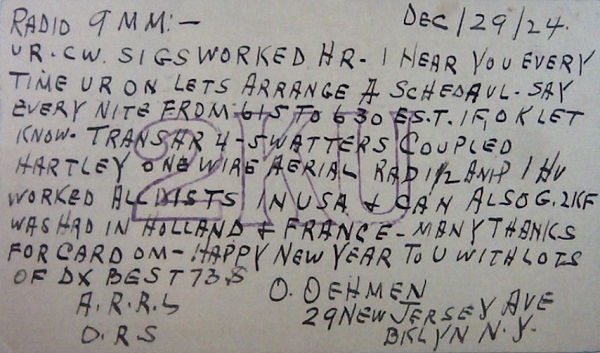 RADIO 9MM:- DEC/29/24.
UR.CW. SIGS WORKED HR- I HEAR YOU EVERY
TIME UR ON LETS ARRANGE A SCHEDAUL- SAY
EVERY NITE FROM 615 TO 630 E.S.T. IF OK LET
KNOW- TRANSMR 4-5 WATTERS COUPLED
HARTLEY ONE WIRE AERIAL RAD 1 1/2 AMP I HV
WORKED ALL DISTS IN USA & CAN ALSO G.2KF
WAS HAD IN HOLLAND & FRANCE- MANY THANKS
FOR CARD OM- HAPPY NEW YEAR TO U WITH LOTS
OF DX BEST 73S
2KU
A.R.R.L
O.R.S
O. OEHMEN
29 NEW JERSEY AVE
BKLYN N.Y.